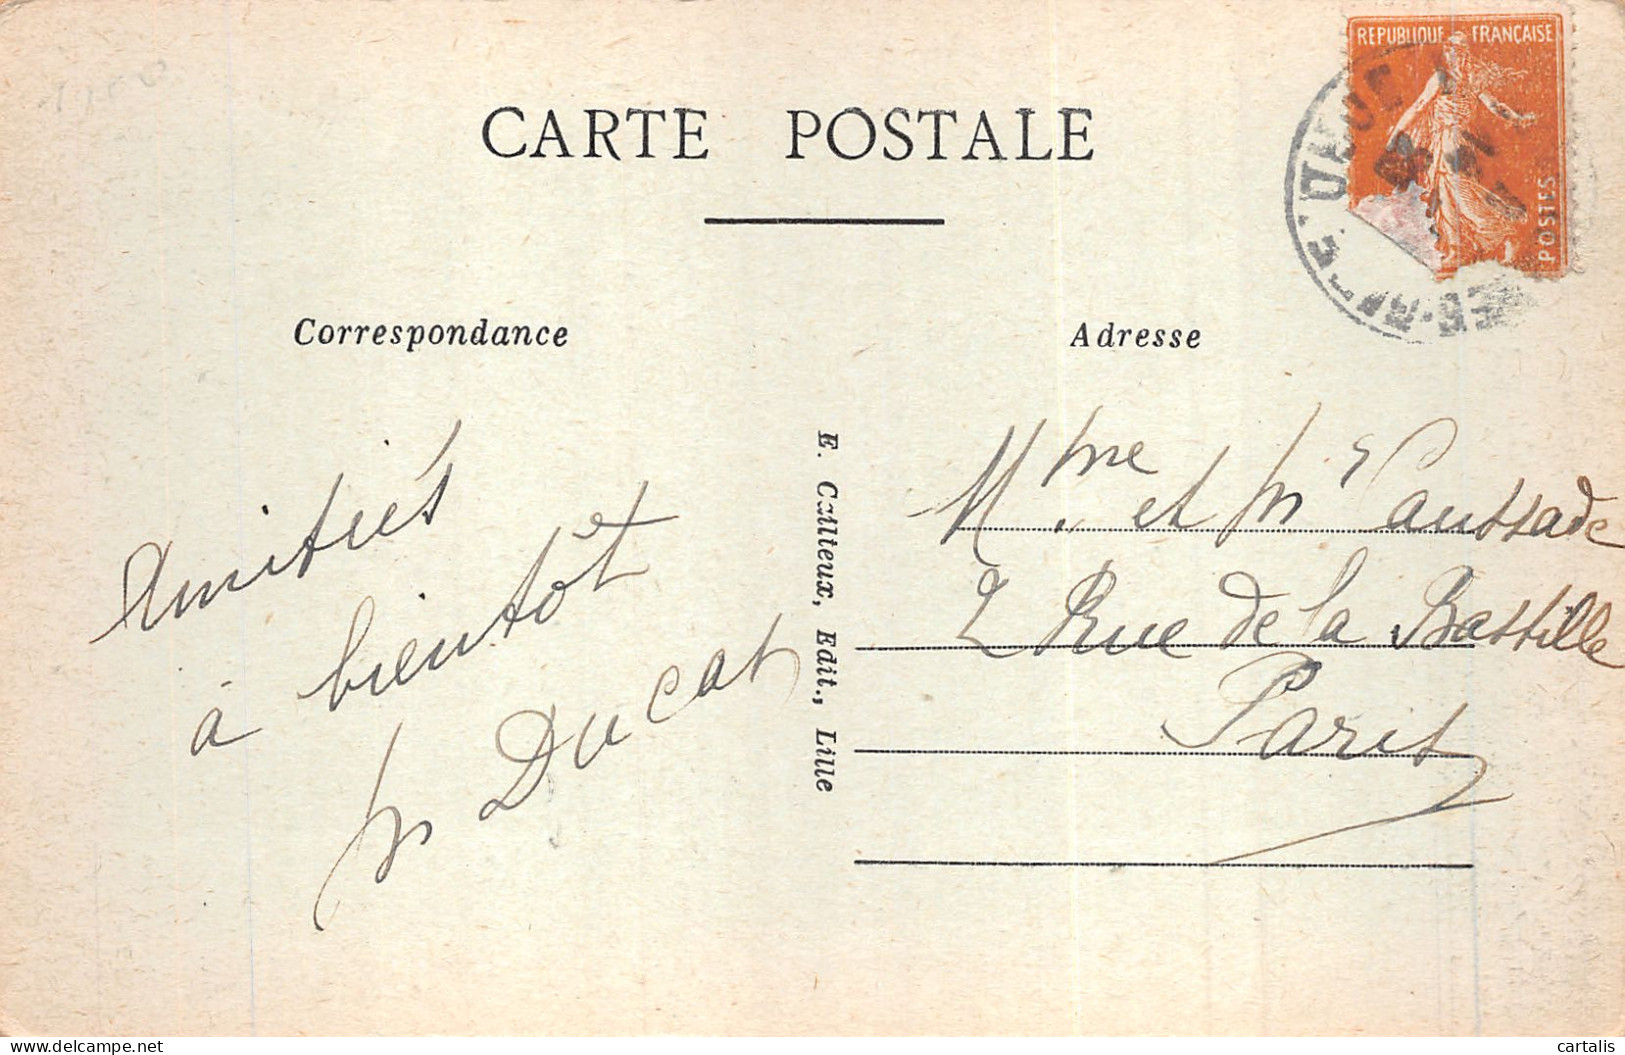 1100
REPUBLIQUE FRANÇAISE
POSTES
CARTE POSTALE
Correspondance
Adresse
E. Cailteux, Edit., Lille
Amitiés
à bientôt
M Ducat
Mme et Mr Caussade
2 Rue de la Bastille
Paris
delcampe.net
cartalis